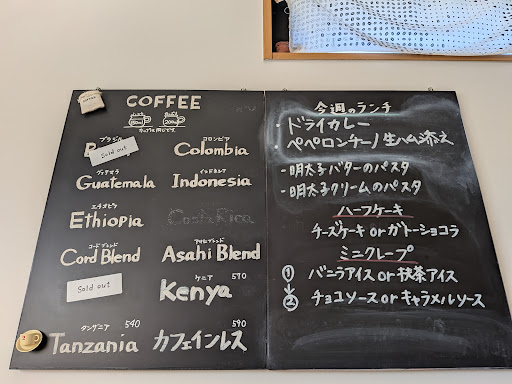 COFFEE
ブラジル
Sold out
コロンビア
Colombia
グァテマラ
Guatemala
インドネシア
Indonesia
エチオピア
Ethiopia
Costa Rica
コードブレンド
Cord Blend
アサヒブレンド
Asahi Blend
Sold out
ケニア 570
Kenya
タンザニア 540
Tanzania
590
カフェインレス
今週のランチ
・ドライカレー
・ペペロンチーノ生ハム添え
・明太子バターのパスタ
・明太子クリームのパスタ
ハーフケーキ
チーズケーキ or ガトーショコラ
ミニクレープ
① バニラアイス or 抹茶アイス
② チョコソース or キャラメルソース